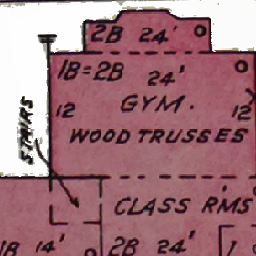 2B 24'
1B=2B 24'
12 GYM. 12
WOOD TRUSSES
STAIRS
CLASS RMS
1B 14' 2B 24' 1